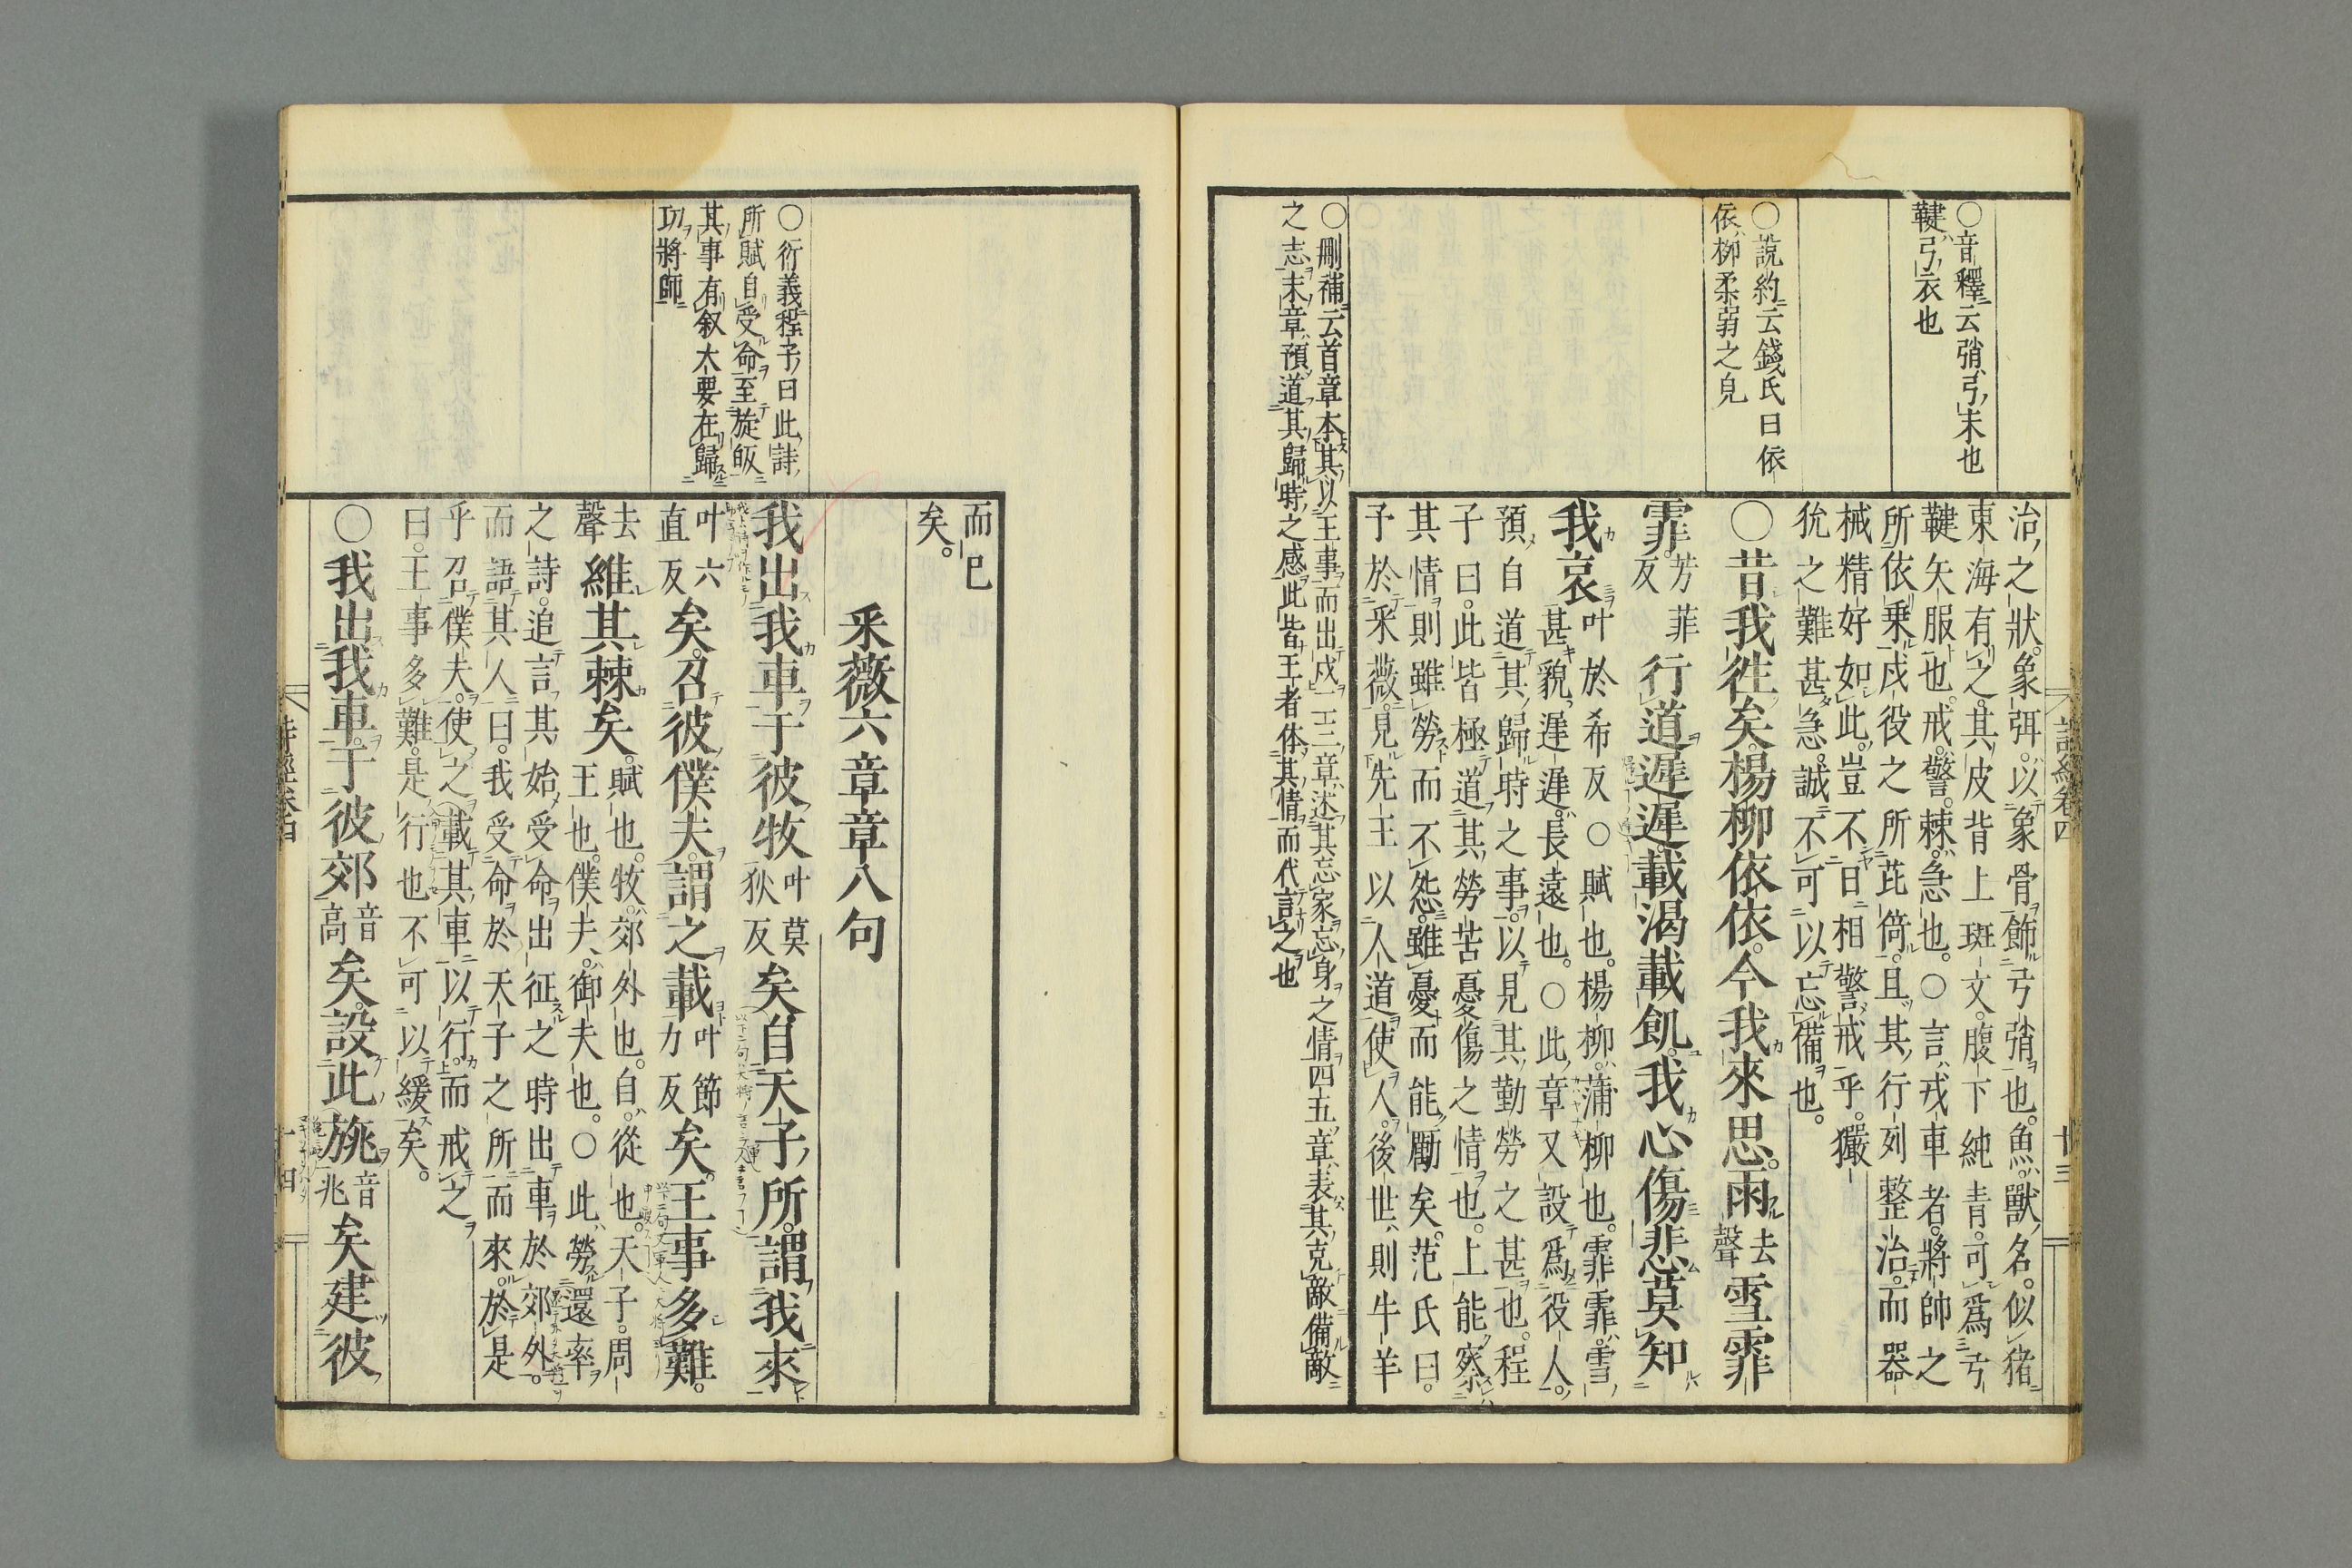 詩經卷四
廿三
○音釋云弰弓末也
鞬弓衣也
○說約云錢氏曰依
依柳柔弱之皃
治之狀象弭以象骨飾弓弰也魚獸名似猪
東海有之其皮背上斑文腹下純青可爲弓
鞬矢服也戒警棘急也○言戎車者將帥之
所依乗戍役之所芘倚且其行列整治而器
械精好如此豈不日相警戒乎玁
狁之難甚急誠不可以忘備也
○昔我徃矣楊柳依依今我來思雨去聲雪霏
霏芳菲反行道遲遲載渴載飢我心傷悲莫知
我哀叶於希反○賦也楊柳蒲柳也霏霏雪
甚貌遲遲長遠也○此章又設爲役人
預自道其歸時之事以見其勤勞之甚也程
子曰此皆極道其勞苦憂傷之情也上能察
其情則雖勞而不怨雖憂而能勵矣范氏曰
予於采薇見先王以人道使人後世則牛羊
○刪補云首章本其以王事而出戍二三章述其忘家忘身之情四五章表其克敵備敵
之志末章預道其歸時之感此皆王者体其情而代言之也
而已
矣
采薇六章章八句
○衍義程子曰此詩
所賦自受命至旋皈
其事有叙大要在歸
功將師
我出我車于彼牧叶莫狄反矣自天子所謂我來
叶六直反矣召彼僕夫謂之載叶節力反矣王事多難
去聲維其棘矣賦也牧郊外也自從也天子周
王也僕夫御夫也○此勞還率
之詩追言其始受命出征之時出車於郊外
而語其人曰我受命於天子之所而來於是
乎召僕夫使之載其車以行而戒之
曰王事多難是行也不可以緩矣
○我出我車于彼郊音高矣設此旐音兆矣建彼
詩經卷四
十四